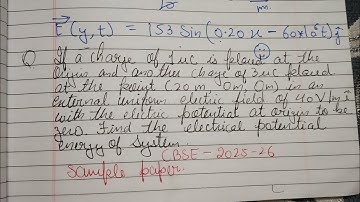 m.
E(y,t) = 153 Sin(0.20 x - 60*10⁶t) ĵ
Q If a charge of 7 uc is placed at the
Origin and another charge of 3uc placed
at the point (20 m, 0m, 0m) in an
external uniform electric field of 40 V/m î
with the elctric potential at origin to be
zero. Find the electrical potential
energy of system.
CBSE - 2025-26
Sample paper.